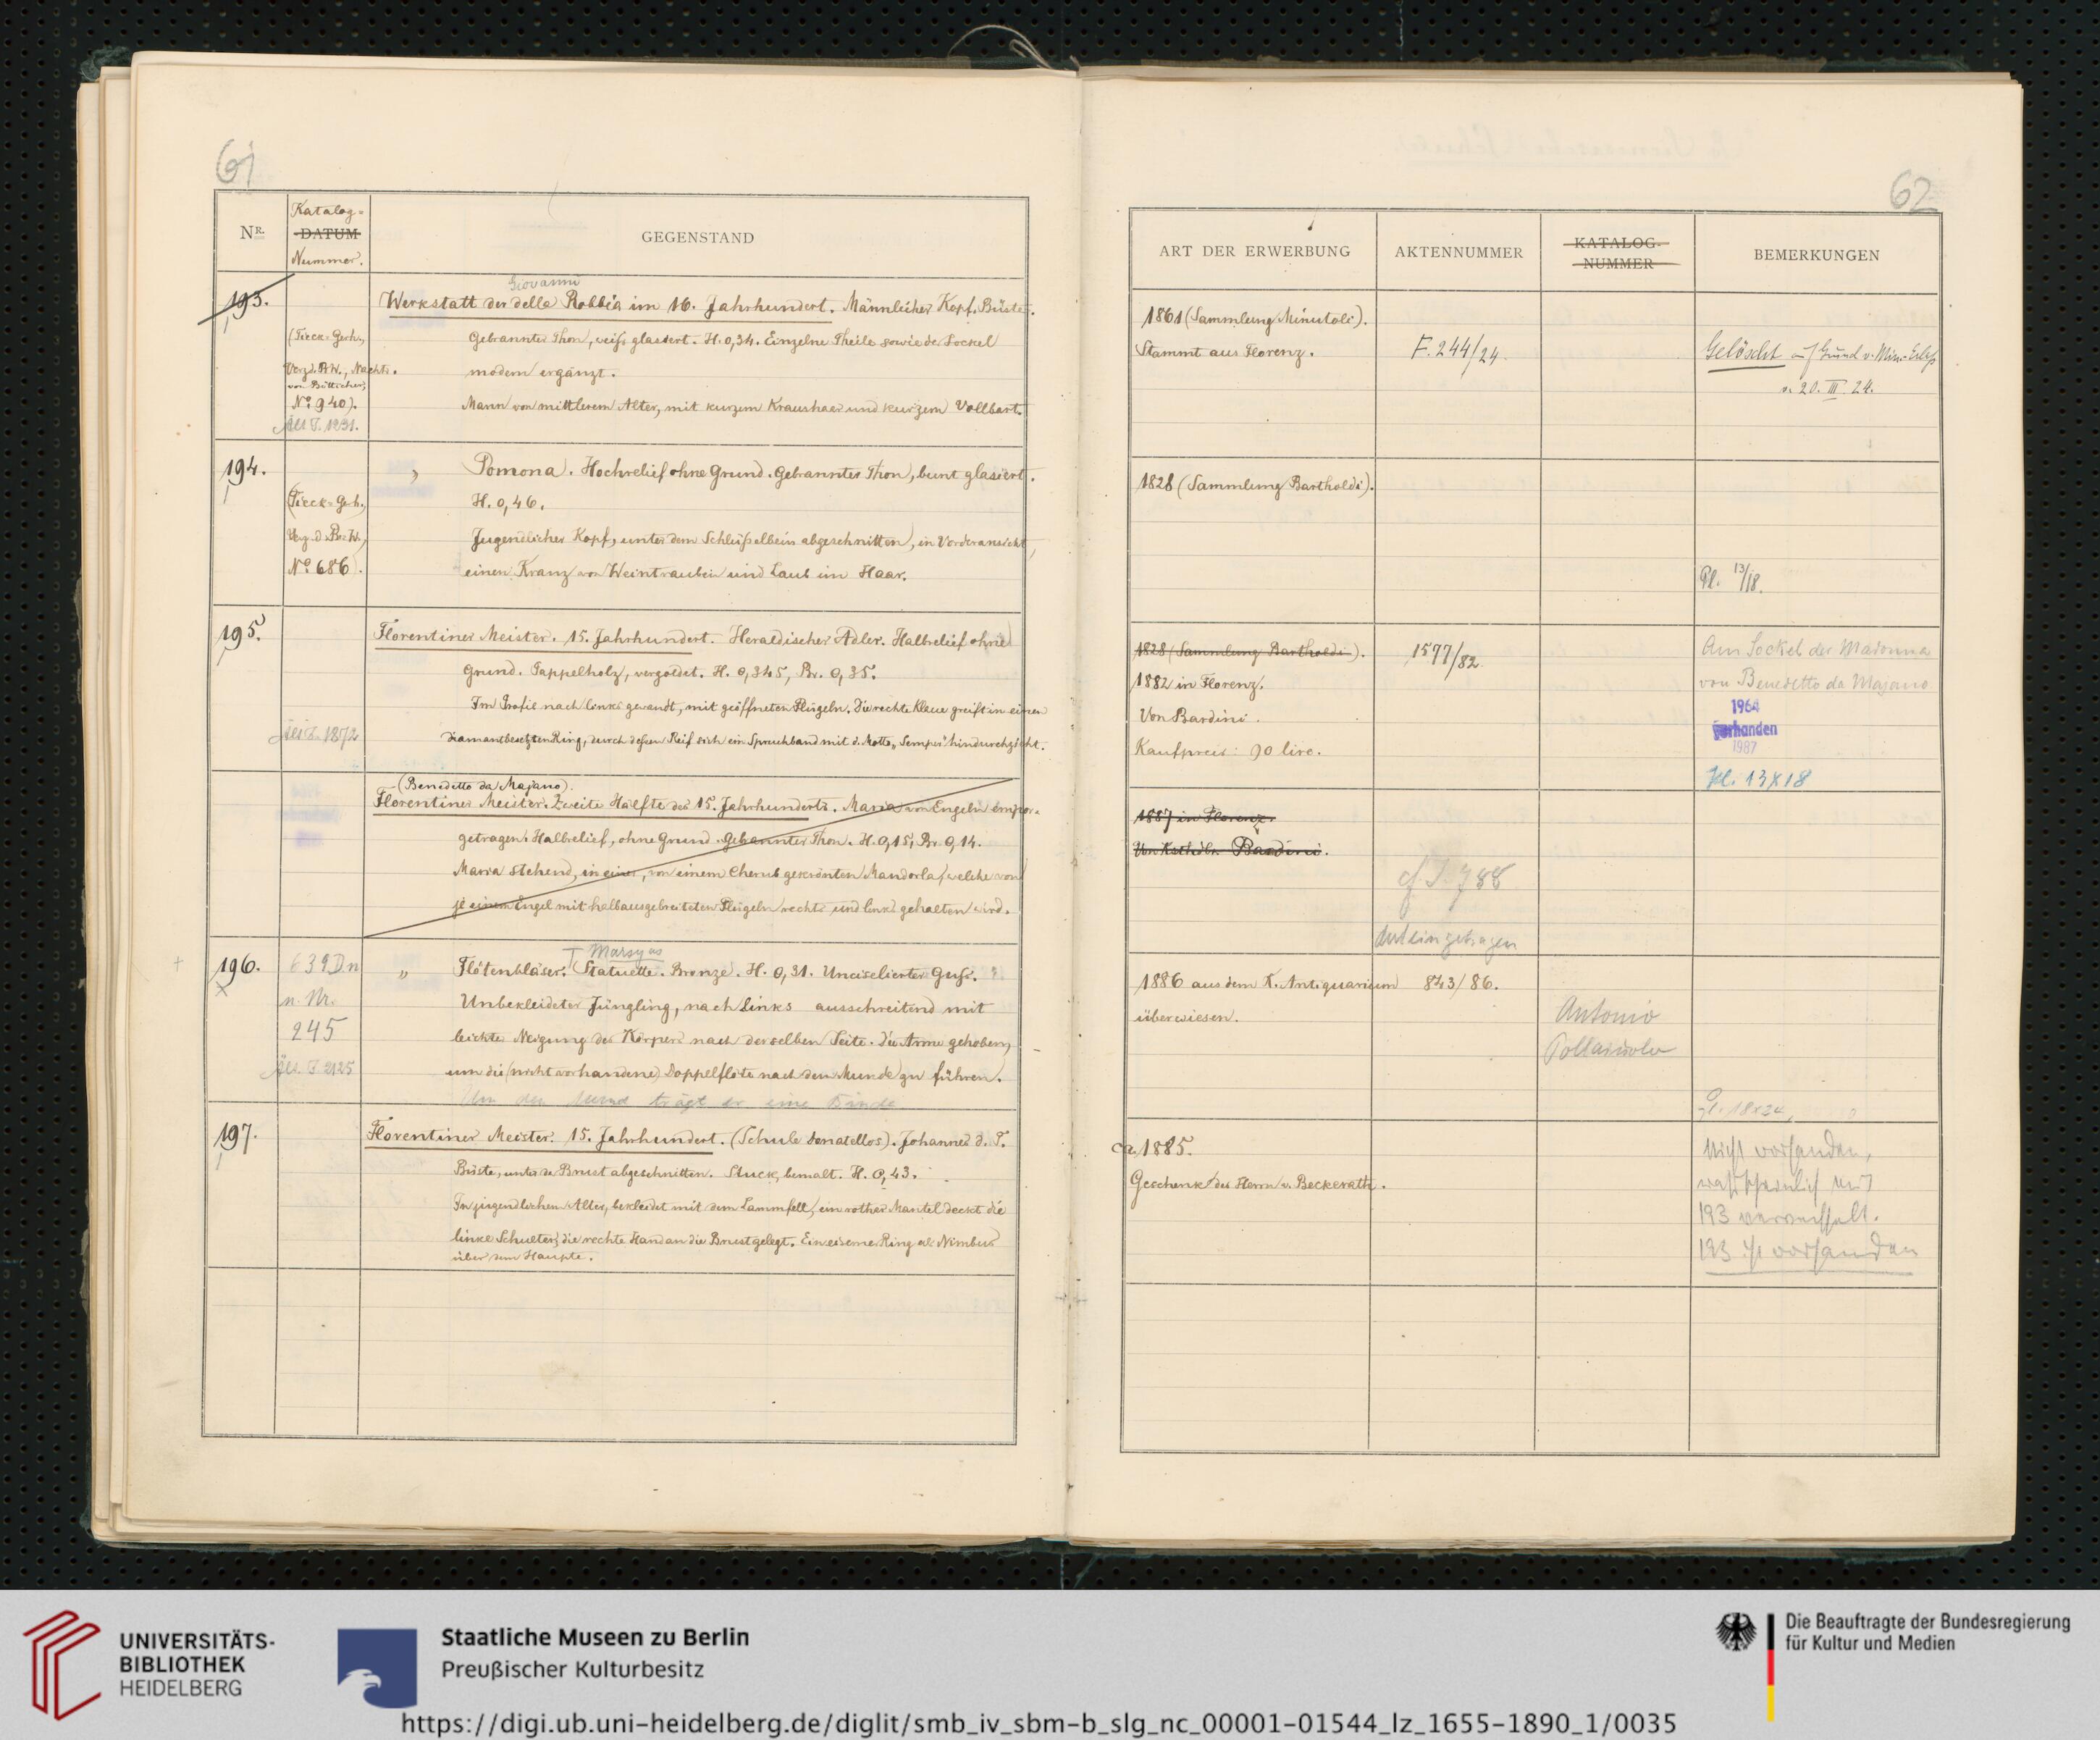 61
NR.
Katalog-
DATUM
Nummer.
GEGENSTAND
193.
(Tieck-Gerh.,
von Bötticher,
No. 940).
Giovanni
Werkstatt der della Robbia im 16. Jahrhundert. Männlicher Kopf. Büste.
Gebrannter Thon, weiss glasiert. H. 0,34. Einzelne Theile sowie der Sockel
modern ergänzt.
Mann von mittlerem Alter, mit kurzem Kraushaar und kurzem Vollbart.
194.
(Tieck-Gerh.,
No 686).
„ Pomona. Hochrelief ohne Grund. Gebrannter Thon, bunt glasiert.
H. 0,46.
Jugendlicher Kopf, unter dem Schlüsselbein abgeschnitten, in Vorderansicht,
einen Kranz von Weintrauben und Laub im Haar.
195.
Florentiner Meister. 15. Jahrhundert. Heraldischer Adler. Halbrelief ohne
Grund. Pappelholz, vergoldet. H. 0,345, Br. 0,35.
Im Profil nach links gewandt, mit geöffneten Flügeln. Die rechte Klaue greift in einen
diamantbesetzten Ring, durch dessen Reif sich ein Spruchband mit d. Motto „Semper“ hindurchzieht.
(Benedetto da Majano).
Florentiner Meister. Zweite Hälfte des 15. Jahrhunderts. Maria von Engeln empor-
getragen. Halbrelief, ohne Grund. Gebrannter Thon. H. 0,15, Br. 0,14.
Maria stehend, in einer, von einem Cherub gekrönten Mandorla, welche von
je einem Engel mit halbausgebreiteten Flügeln rechts und links gehalten wird.
196.
639 Dn
n. Nr.
245
Marsyas
„ Flötenbläser. Statuette. Bronze. H. 0,31. Unciselierter Guss.
Unbekleideter Jüngling, nach links ausschreitend mit
leichter Neigung des Körpers nach derselben Seite. Die Arme gehoben,
um die (nicht vorhandene) Doppelflöte nach dem Munde zu führen.
Um den Mund trägt er eine Binde
197.
Florentiner Meister. 15. Jahrhundert. (Schule Donatellos). Johannes d. T.
Büste, unter der Brust abgeschnitten. Stuck, bemalt. H. 0,43.
In jugendlichem Alter, bekleidet mit dem Lammfell, ein rother Mantel deckt die
linke Schulter, die rechte Hand an die Brust gelegt. Ein eiserner Ring als Nimbus
über dem Haupte.
62
ART DER ERWERBUNG
AKTENNUMMER
KATALOG-
NUMMER
BEMERKUNGEN
1861 (Sammlung Minutoli).
Stammt aus Florenz.
F. 244/24.
Gelöscht auf Grund v. Min-Erlass
v. 20. III. 24.
1828 (Sammlung Bartholdi).
Pl. 13/18.
1828 (Sammlung Bartholdi).
1882 in Florenz.
Von Bardini.
Kaufpreis: 90 lire.
1577/82
Am Sockel der Madonna
von Benedetto da Majano
1964
Vorhanden
1987
Pl. 13x18
1887 in Florenz.
Bardini.
cf. I. 788
1886 aus dem K. Antiquarium
überwiesen.
843/86.
Antonio
Pollaiuolo
Pl. 18x24,
ca 1885.
Geschenk des Herrn v. Beckerath.
Nicht vorhanden,
wahrscheinlich mit
193 verwechselt.
193 ist vorhanden
UNIVERSITÄTS-
BIBLIOTHEK
HEIDELBERG
Staatliche Museen zu Berlin
Preußischer Kulturbesitz
Die Beauftragte der Bundesregierung
für Kultur und Medien
https://digi.ub.uni-heidelberg.de/diglit/smb_iv_sbm-b_slg_nc_00001-01544_lz_1655-1890_1/0035